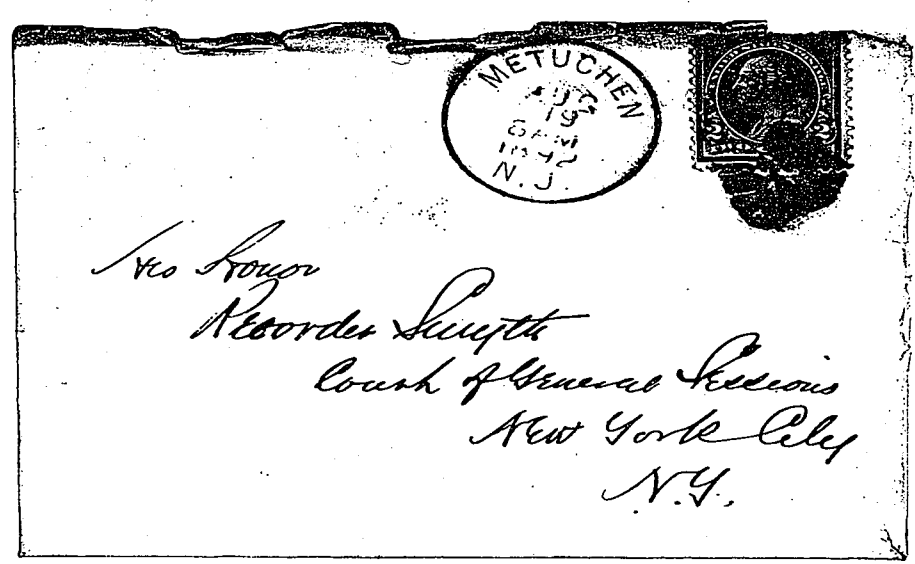 METUCHEN
AUG
19
6 AM
1892
N.J.
2 2
His Honor
Recorder Smyth
Court of General Sessions
New York City
N.Y.